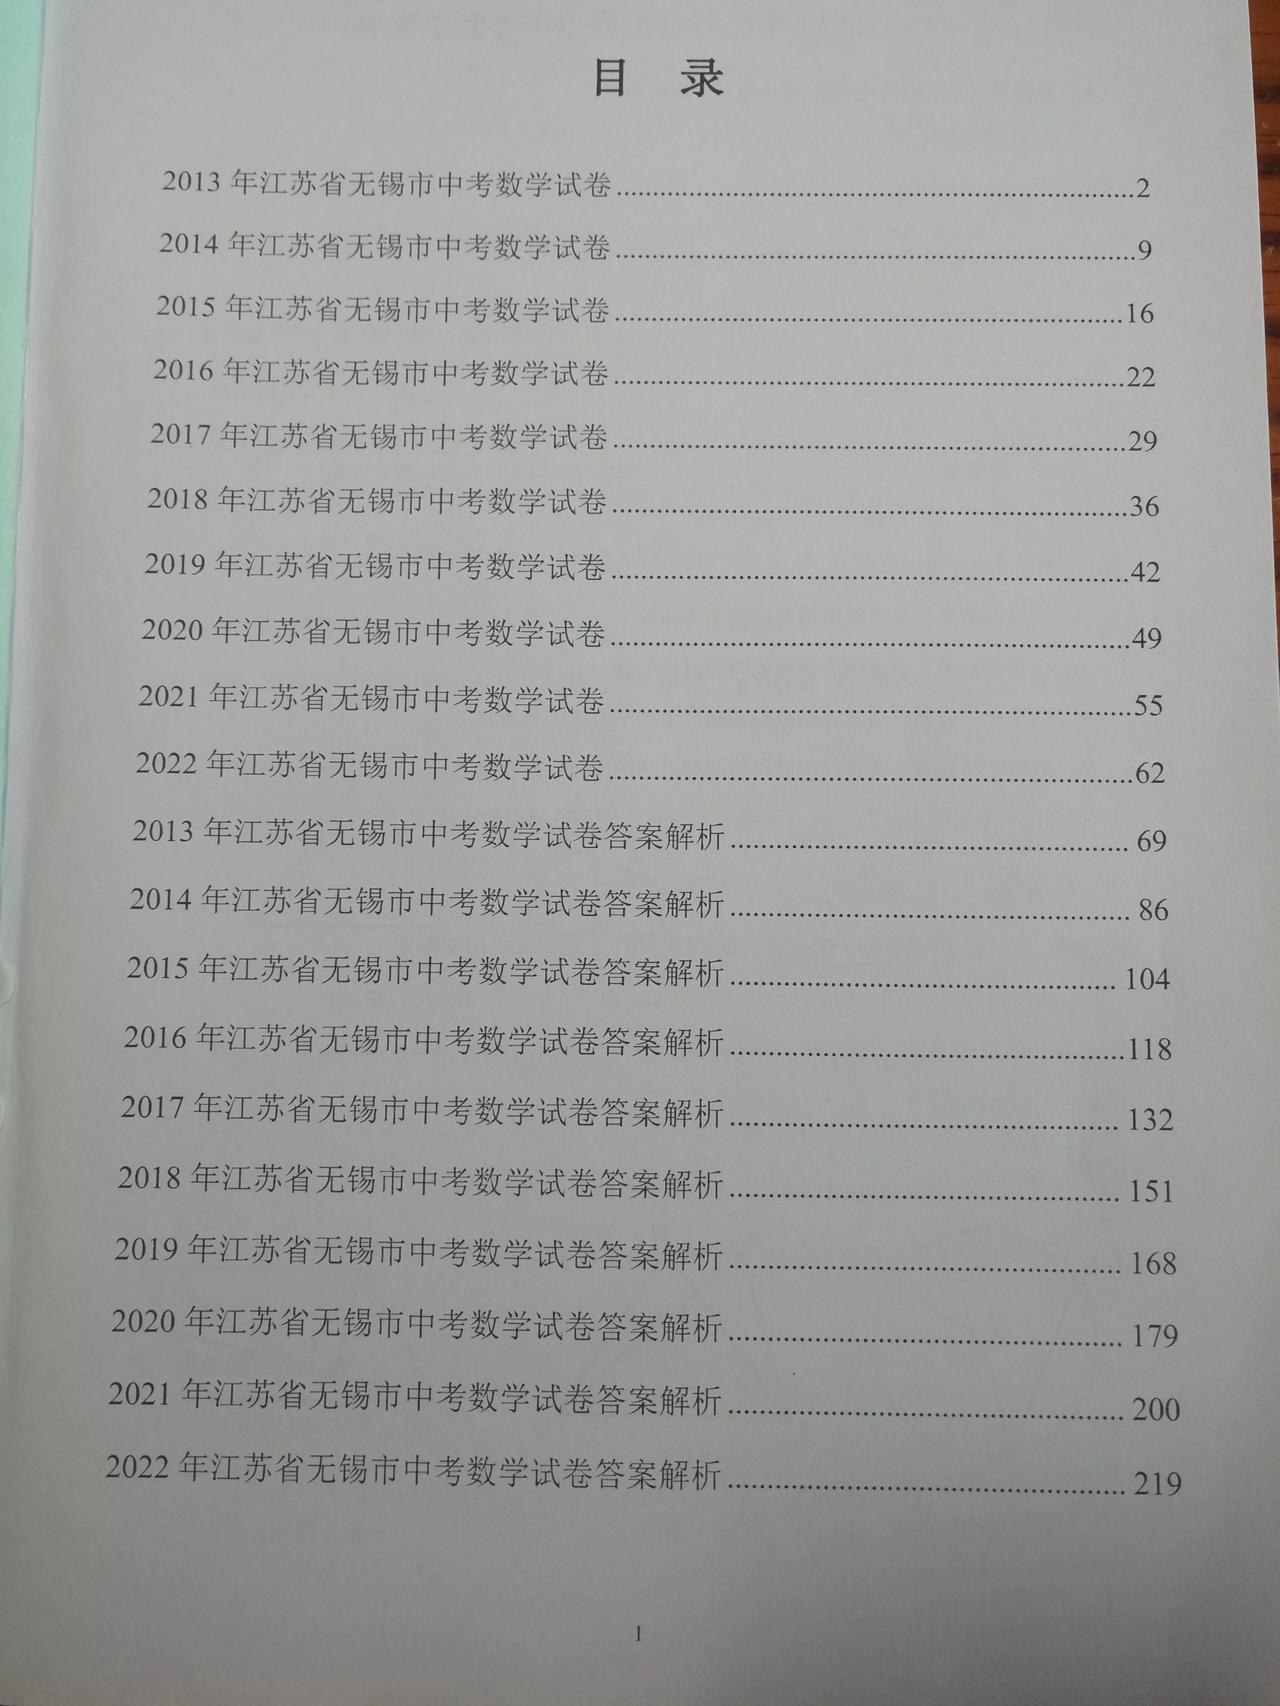 目 录
2013 年江苏省无锡市中考数学试卷........................................................................2
2014 年江苏省无锡市中考数学试卷........................................................................9
2015 年江苏省无锡市中考数学试卷.......................................................................16
2016 年江苏省无锡市中考数学试卷.......................................................................22
2017 年江苏省无锡市中考数学试卷.......................................................................29
2018 年江苏省无锡市中考数学试卷.......................................................................36
2019 年江苏省无锡市中考数学试卷.......................................................................42
2020 年江苏省无锡市中考数学试卷.......................................................................49
2021 年江苏省无锡市中考数学试卷.......................................................................55
2022 年江苏省无锡市中考数学试卷.......................................................................62
2013 年江苏省无锡市中考数学试卷答案解析...................................................... 69
2014 年江苏省无锡市中考数学试卷答案解析...................................................... 86
2015 年江苏省无锡市中考数学试卷答案解析.................................................... 104
2016 年江苏省无锡市中考数学试卷答案解析.....................................................118
2017 年江苏省无锡市中考数学试卷答案解析.................................................... 132
2018 年江苏省无锡市中考数学试卷答案解析.................................................... 151
2019 年江苏省无锡市中考数学试卷答案解析.................................................... 168
2020 年江苏省无锡市中考数学试卷答案解析.................................................... 179
2021 年江苏省无锡市中考数学试卷答案解析.................................................... 200
2022 年江苏省无锡市中考数学试卷答案解析.................................................... 219
1